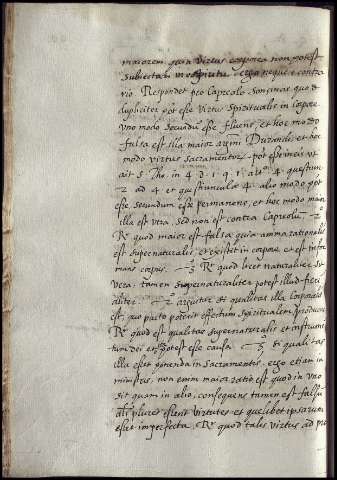 maiorem, quia virtus corporea non potest
subiectari in spiritu ergo neque e contra
rio. Respondet pro Capreolo Soncinas quod
dupliciter pot esse virtus spiritualis in corpore
uno modo secundum esse fluens, et hoc modo
falsa est illa maior argumenti Durandi, et hoc
modo virtus sacramentor. pot esse in eis ut
ait S. Tho. in 4 d. 1 q. 1 articulo 4 questiun
2 ad 4 et questiuncula 4. alio modo pot
esse secundum esse permanens, et hoc modo maior
illa est vera, sed non est contra Capreolum. 2º
Rº quod maior est falsa quia anima rationalis
est supernaturalis, et existit in corpore et est infor
mans corpus. 3º Rº quod licet naturaliter sit
vera, tamen supernaturaliter potest illud fieri
aliter. 2º arguitur si qualitas illa corporalis
est, quo pacto poterit effectum spiritualem producere
Rº quod est qualitas supernaturalis et instrumen
tum dei et potest esse causa. 3º si qualitas
illa esset ponenda in sacramentis, ergo etiam in
ministris, non enim maior ratio est quod in uno
sit quam in alio, consequens tamen est falsum
alias plures essent virtutes et quelibet ipsarum
esset imperfecta. Rº quod talis virtus ad pro